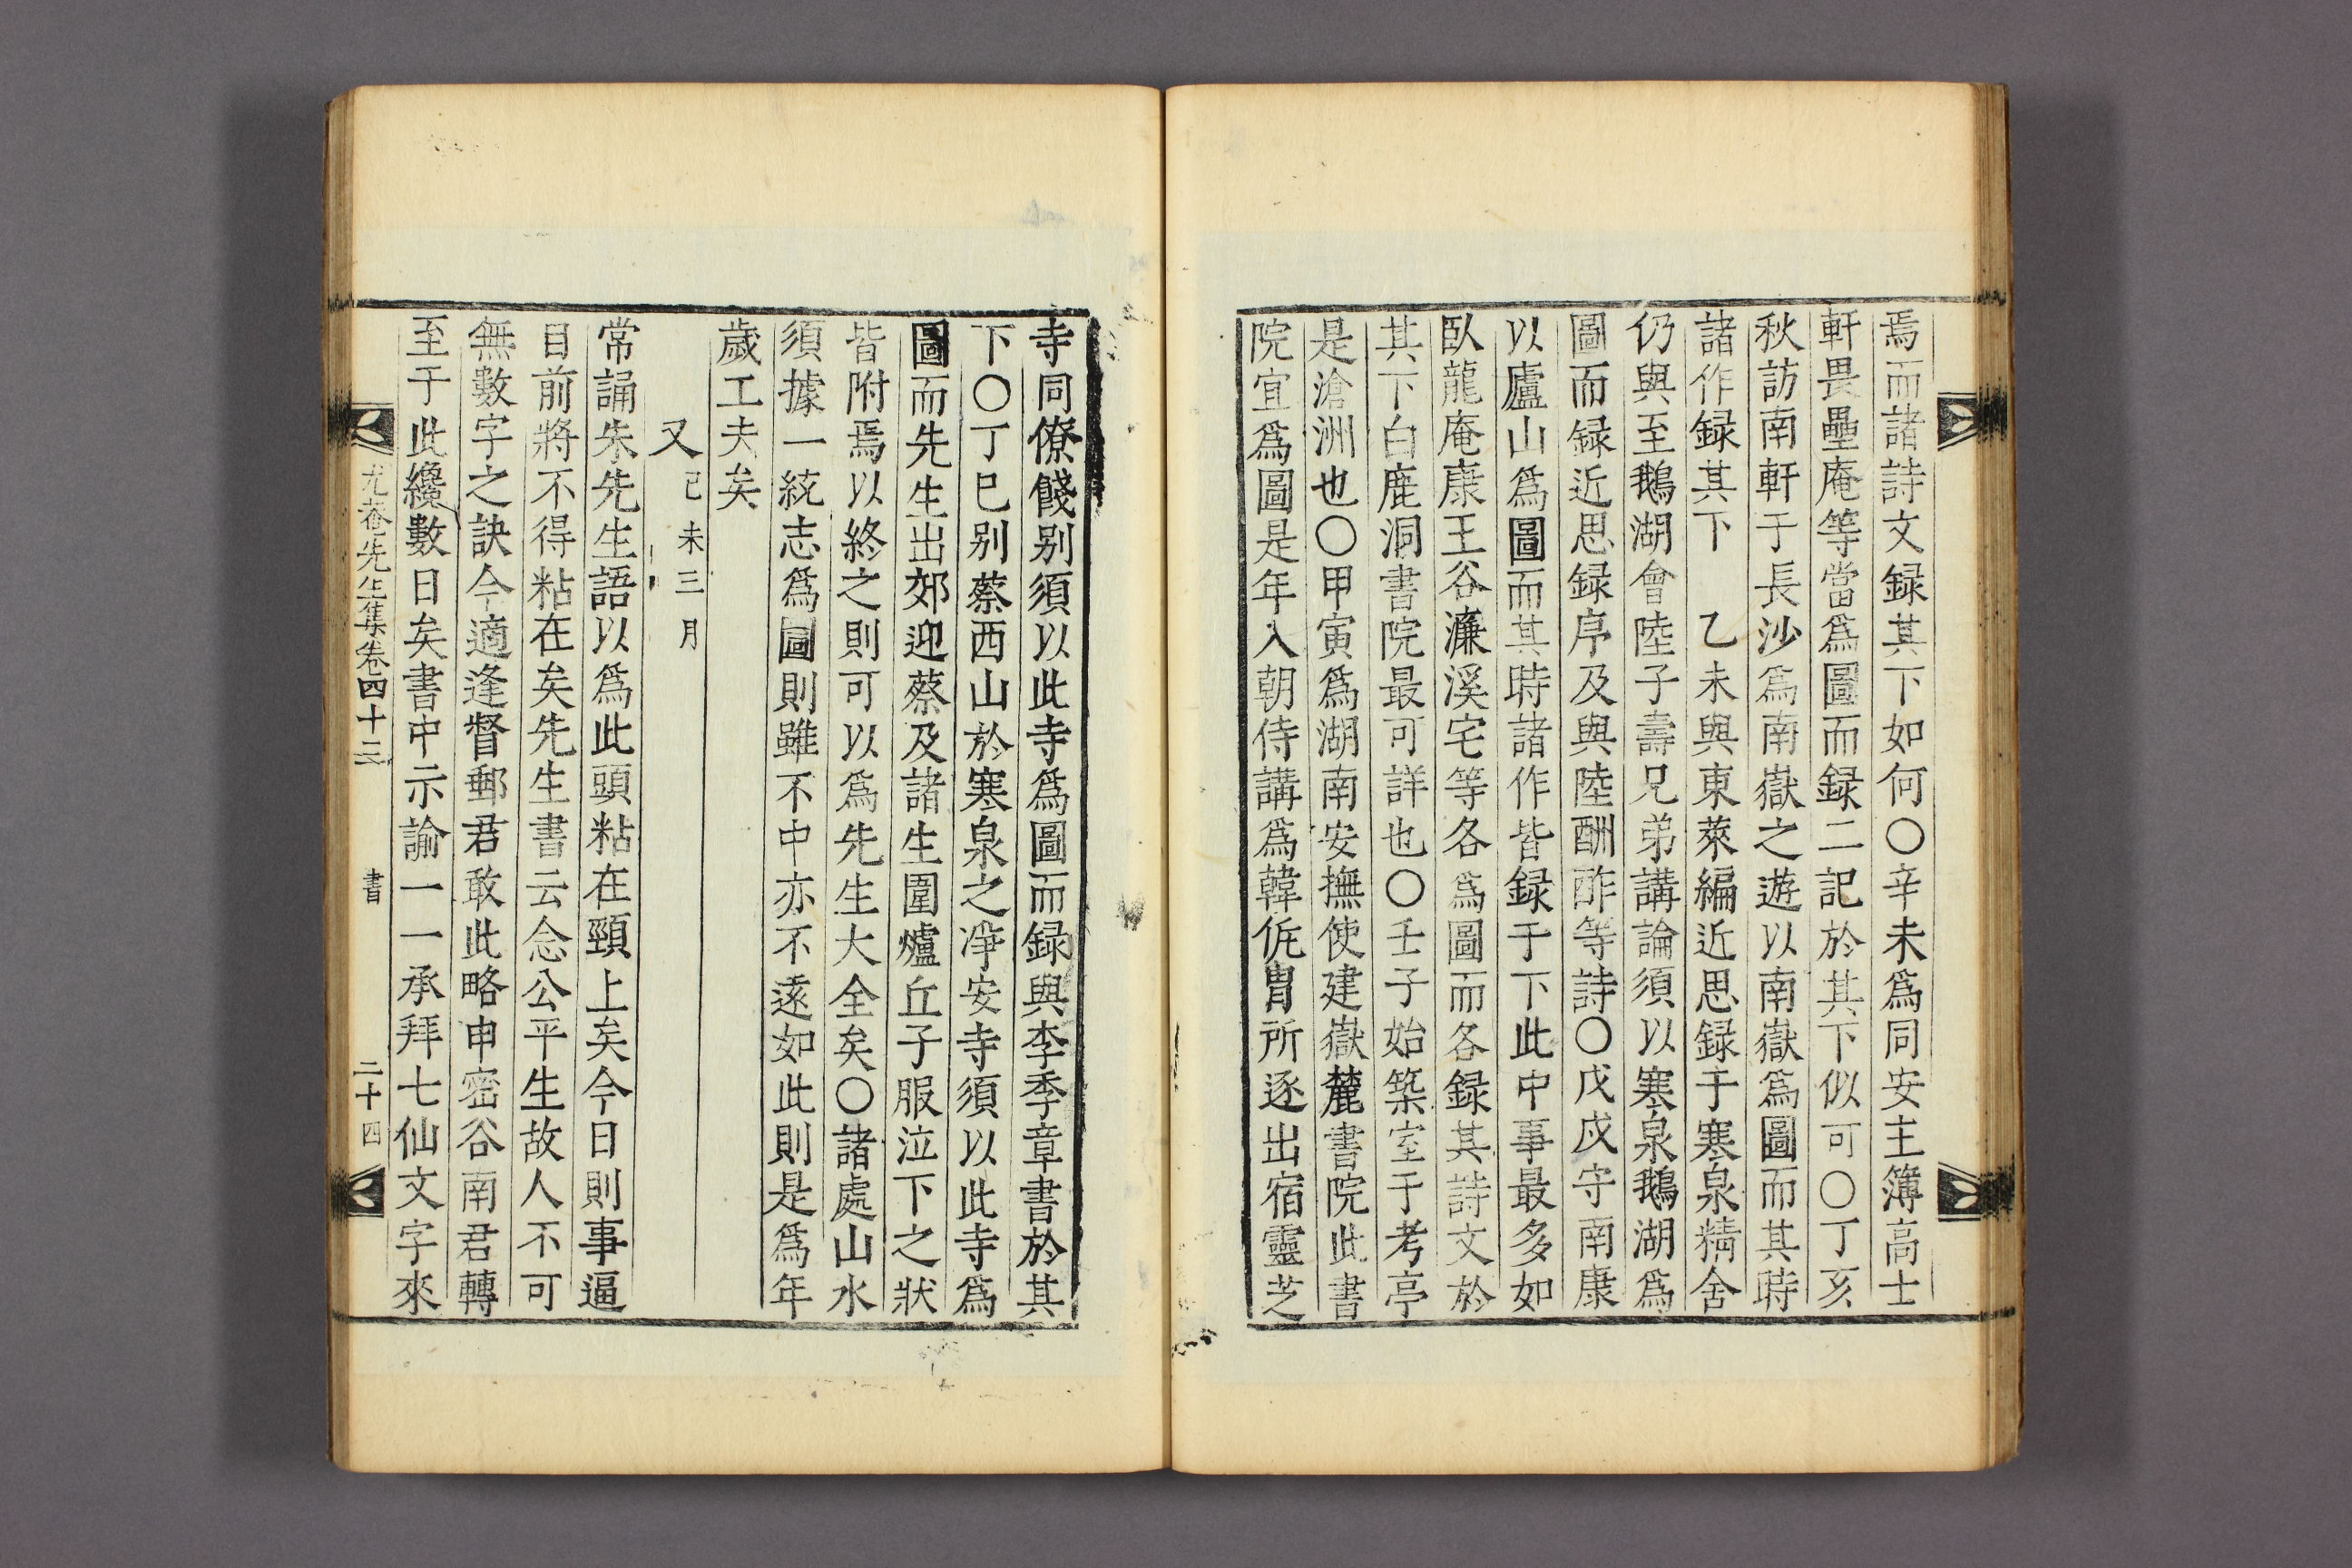 焉而諸詩文録其下如何○辛未爲同安主簿高士
軒畏壘庵等當爲圖而録二記於其下似可○丁亥
秋訪南軒于長沙爲南嶽之遊以南嶽爲圖而其時
諸作録其下　乙未與東萊編近思録于寒泉精舍
仍與至鵝湖會陸子壽兄弟講論須以寒泉鵝湖爲
圖而録近思録序及與陸酬酢等詩○戊戌守南康
以廬山爲圖而其時諸作皆録于下此中事最多如
臥龍庵康王谷濂溪宅等各爲圖而各録其詩文於
其下白鹿洞書院最可詳也○壬子始築室于考亭
是滄洲也○甲寅爲湖南安撫使建嶽麓書院此書
院宜爲圖是年入朝侍講爲韓侂胄所逐出宿靈芝
寺同僚餞别須以此寺爲圖而録與李季章書於其
下○丁巳别蔡西山於寒泉之淨安寺須以此寺爲
圖而先生出郊迎蔡及諸生圍爐丘子服泣下之狀
皆附焉以終之則可以爲先生大全矣○諸處山水
須據一統志爲圖則雖不中亦不遠如此則是爲年
歲工夫矣
又 己未三月
常誦朱先生語以爲此頭粘在頸上矣今日則事逼
目前將不得粘在矣先生書云念公平生故人不可
無數字之訣今適逢督郵君敢此略申密谷南君轉
至于此纔數日矣書中示諭一一承拜七仙文字來
尤菴先生集卷四十三　書　二十四